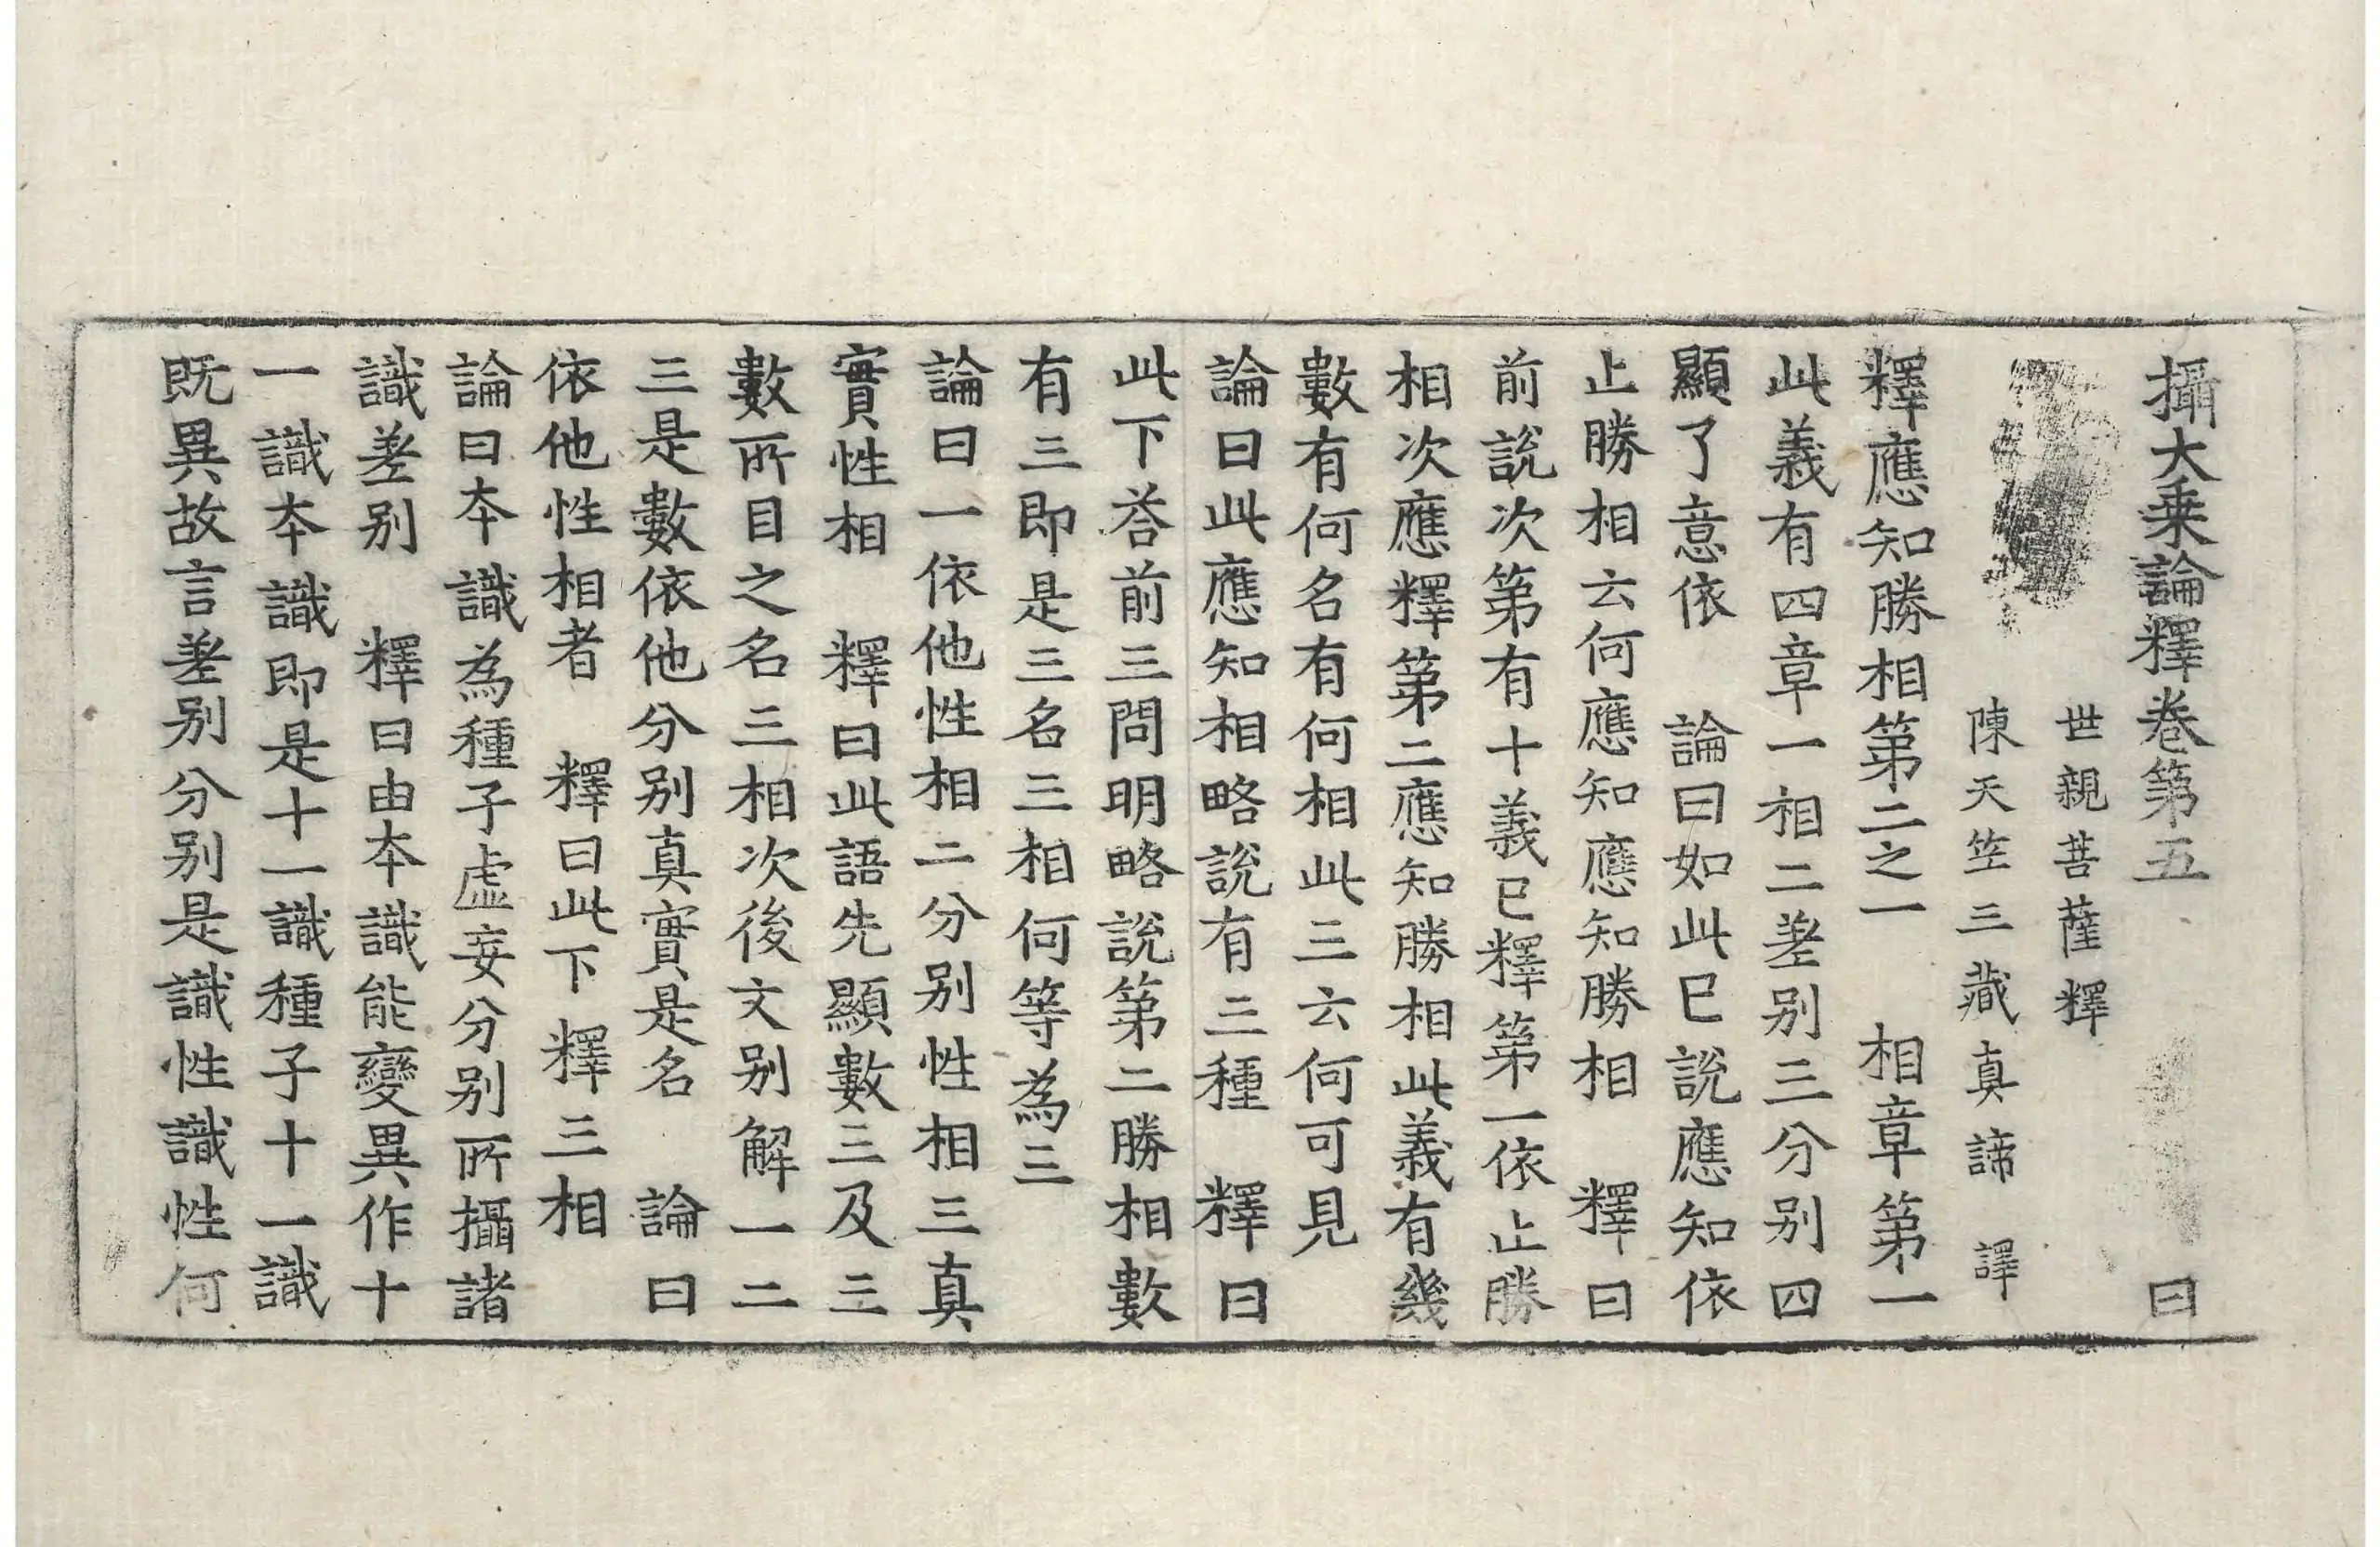 攝大乗論釋卷第五 曰
世親菩薩釋
陳天竺三藏真諦 譯
釋應知勝相第二之一 相章第一
此義有四章一相二差别三分别四
顯了意依 論曰如此已說應知依
止勝相云何應知應知勝相 釋曰
前說次第有十義已釋第一依止勝
相次應釋第二應知勝相此義有幾
數有何名有何相此三云何可見
論曰此應知相略說有三種 釋曰
此下荅前三問明略說第二勝相數
有三即是三名三相何等為三
論曰一依他性相二分别性相三真
實性相 釋曰此語先顯數三及三
數所目之名三相次後文别解一二
三是數依他分别真實是名 論曰
依他性相者 釋曰此下釋三相
論曰本識為種子虚妄分别所攝諸
識差别 釋曰由本識能變異作十
一識本識即是十一識種子十一識
既異故言差别分别是識性識性何